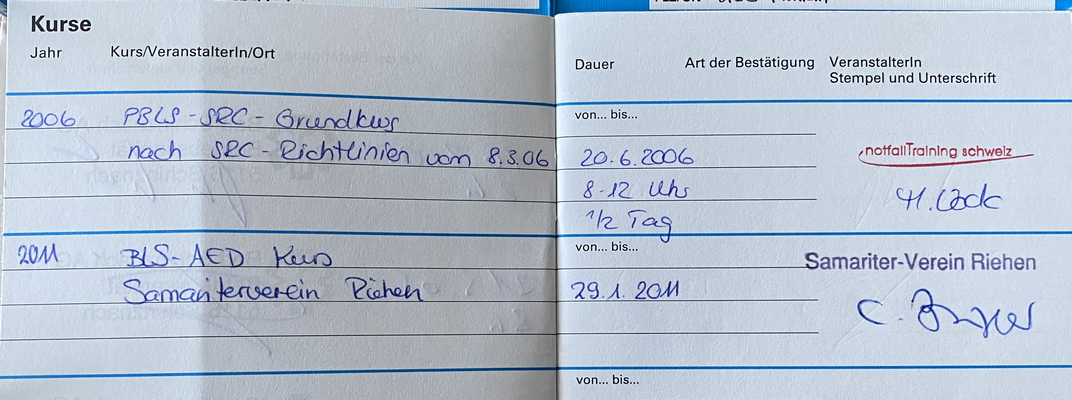 Kurse
Jahr Kurs/VeranstalterIn/Ort
Dauer Art der Bestätigung VeranstalterIn
Stempel und Unterschrift
2006 PBLS-SRC-Grundkurs
nach SRC-Richtlinien vom 8.3.06
von... bis...
20.6.2006
8-12 Uhr
1/2 Tag
notfallTraining schweiz
2011 BLS-AED Kurs
Samariterverein Riehen
von... bis...
29.1.2011
Samariter-Verein Riehen
C.
von... bis...